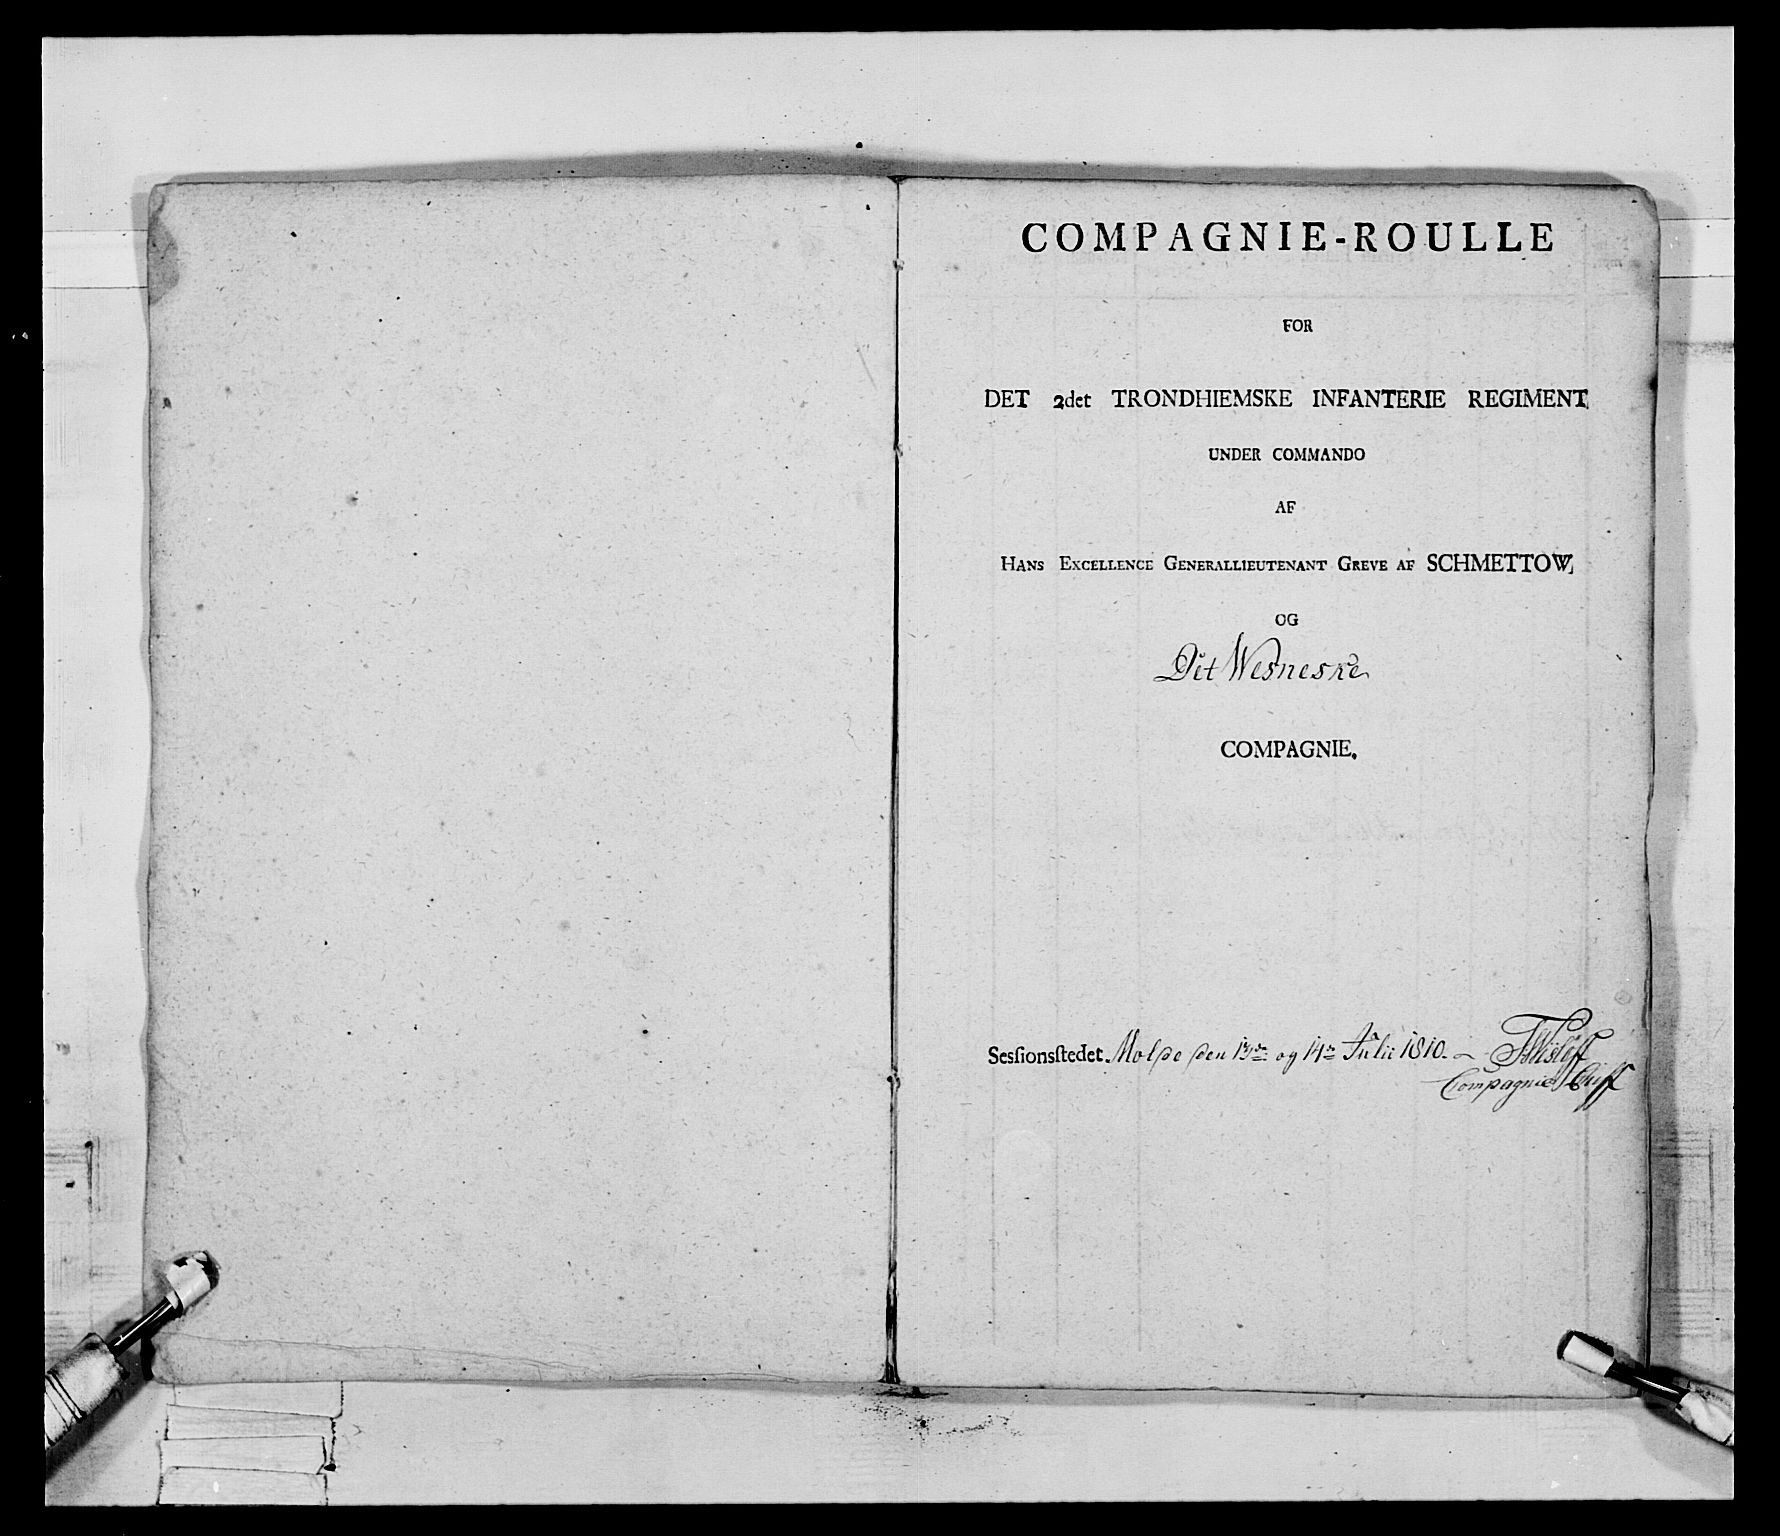 COMPAGNIE-ROULLE
FOR
DET 2det TRONDHIEMSKE INFANTERIE REGIMENT
UNDER COMMANDO
AF
HANS EXCELLENCE GENERALLIEUTENANT GREVE AF SCHMETTOW,
OG
Det Wesneske
COMPAGNIE.
Sesſionsſtedet Molde den 13de og 14de Julii 1810.
Compagnie Cheff